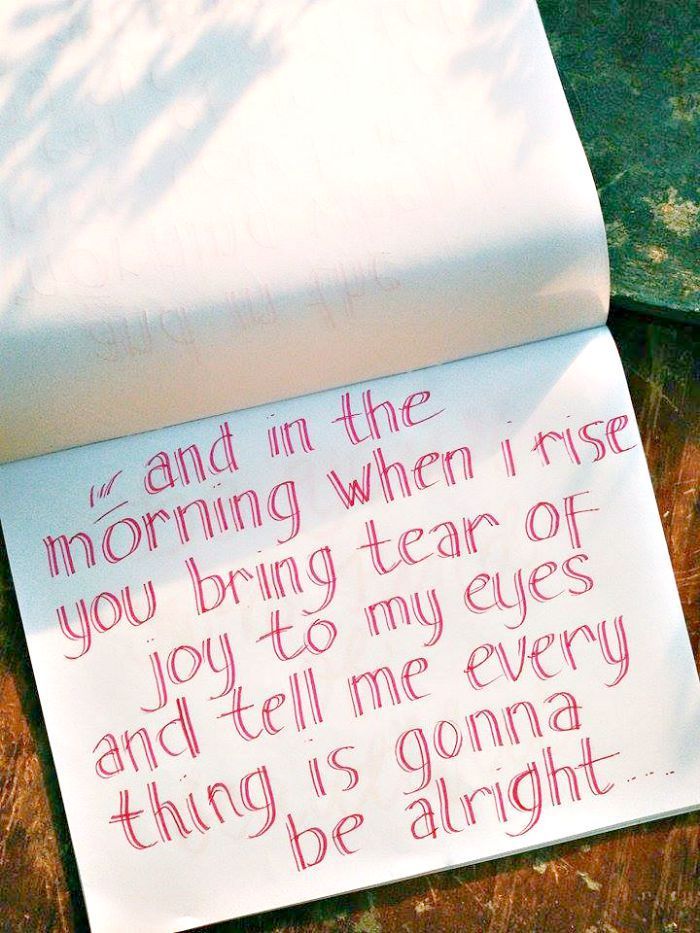 and in the
morning when i rise
you bring tear of
joy to my eyes
and tell me every
thing is gonna
be alright....